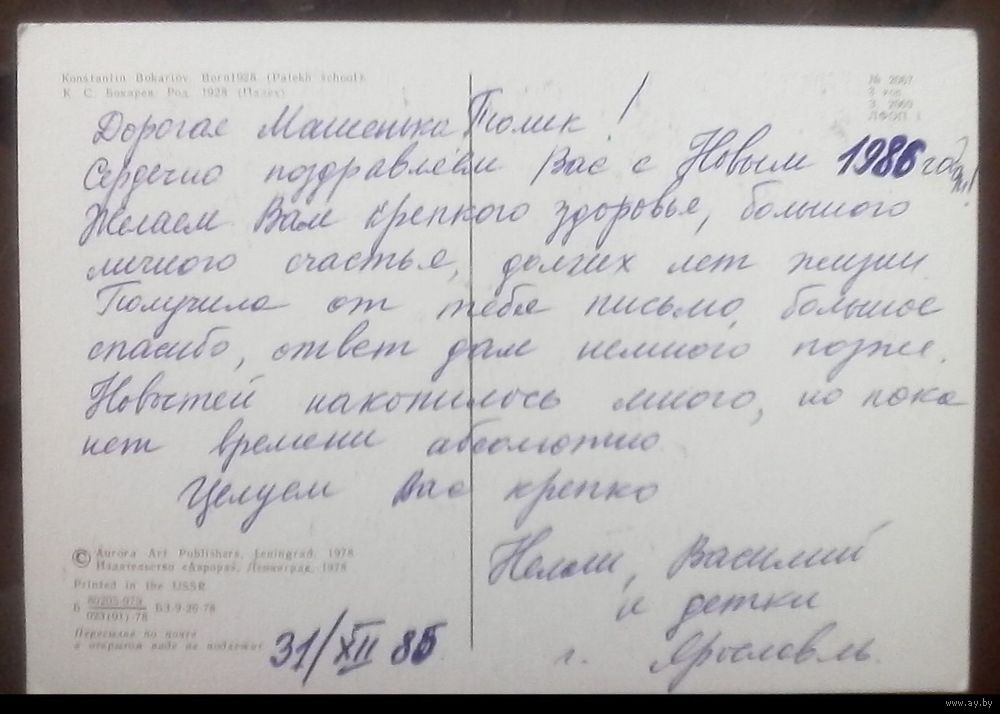 Konstantin Bokariov. Born 1928. (Palekh school).
К. С. Бокарев. Род. 1928 (Палех)
№ 2067
3 коп
З. 2969
ЛФОП 1
Дорогае Машенька Толик !
Сердечно поздравляем Вас с Новым 1986 годом!
Желаем Вам крепкого здоровья, большого
личного счастья, долгих лет жизни.
Получила от тебя письмо, большое
спасибо, ответ дам немного позже.
Новостей накопилось много, но пока
нет времени абсолютно.
Целуем Вас крепко
Нелли, Василий
и детки
г. Ярославль.
31/XII 85
© Aurora Art Publishers, Leningrad, 1978
Издательство «Аврора», Ленинград, 1978
Printed in the USSR
Б 80205-973 БЗ-9-26-78
023(01)-78
Пересылке по почте
в открытом виде не подлежит
www.ay.by